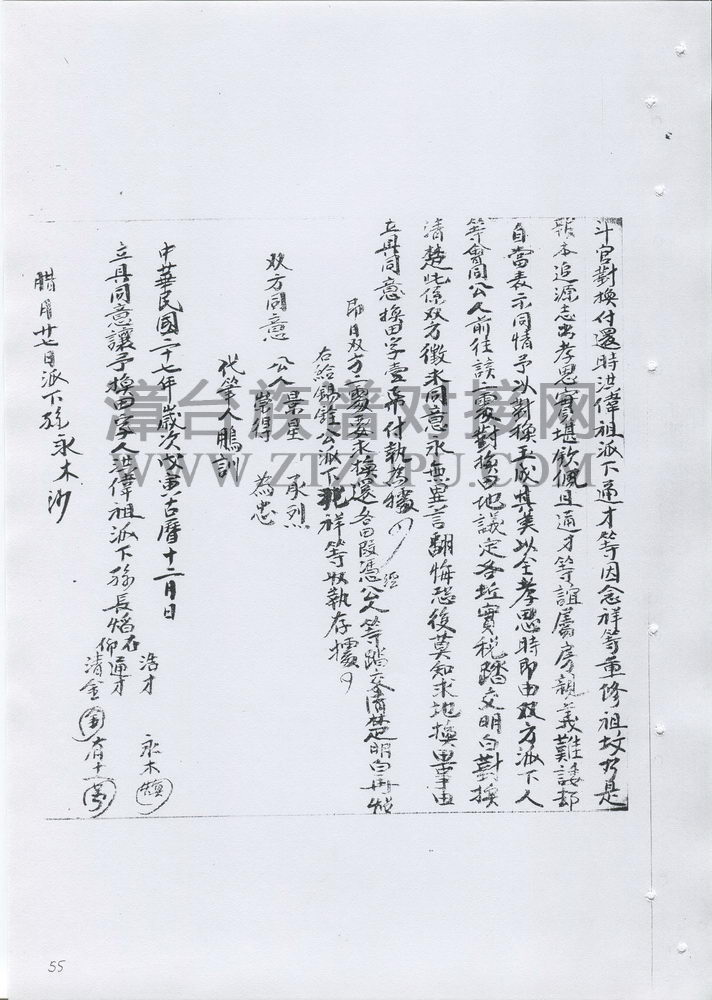 斗官對換付還時洪偉祖派下通才等因念祥等重修祖坟乃是
報本追源志出孝思實堪欽佩且通才等誼屬房親義難諉却
自當表示同情予以對換玉成其美以全孝思時即由双方派下人
等會同公人前往該二處對換田地議定各坵實税踏交明白對換
清楚此係双方徵求同意永無異言翻悔恐後莫知求地換田事由
立具同意換田字壹紙付執為據
即日双方二處妥求換還各田段憑公人等踏交清楚明白再炤
右給錫銓公派下祥等收執存據
双方同意 公人 景星 承烈
崇得 為忠
代筆人鵬訓
中華民國二十七年歲次戊寅古曆十二月日
立具同意讓予換田字人洪偉祖派下孫長焰 石 浩才 永木
仰 通才
清金 有土
腊月廿七日派下孫永木沙
漳台族谱对接网
WWW.ZTZUPU.COM
55